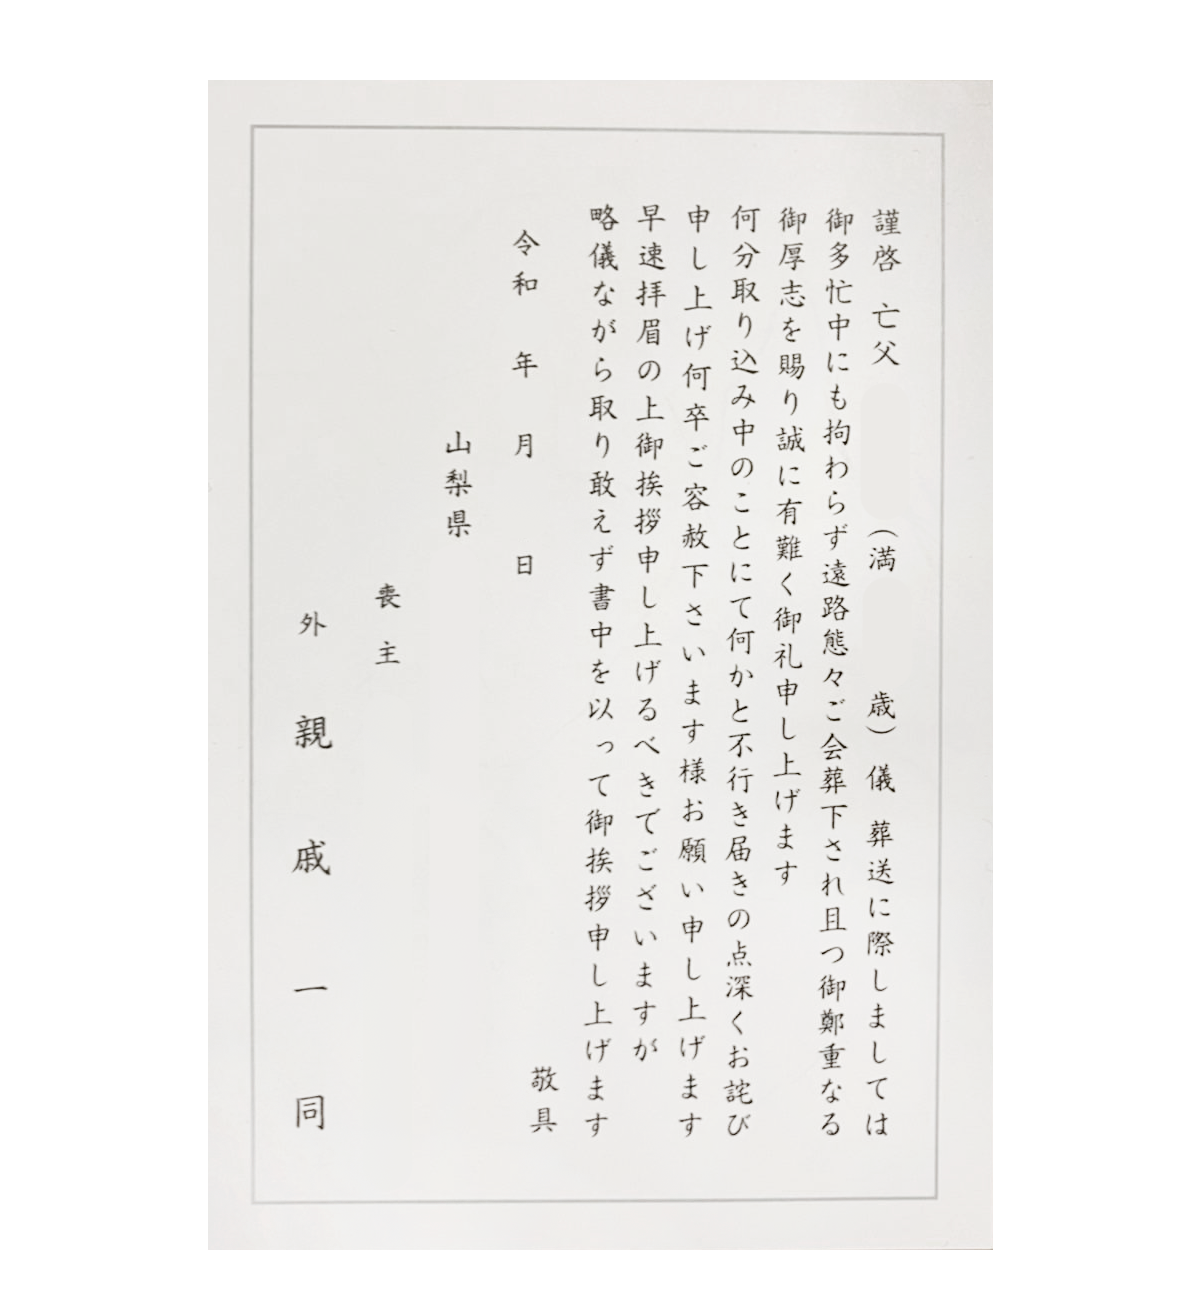 謹啓 亡父 （満 歳）儀 葬送に際しましては
御多忙中にも拘わらず遠路態々ご会葬下され且つ御鄭重なる
御厚志を賜り誠に有難く御礼申し上げます
何分取り込み中のことにて何かと不行き届きの点深くお詫び
申し上げ何卒ご容赦下さいます様お願い申し上げます
早速拝眉の上御挨拶申し上げるべきでございますが
略儀ながら取り敢えず書中を以って御挨拶申し上げます
敬具
令和 年 月 日
山梨県
喪主
外 親戚一同